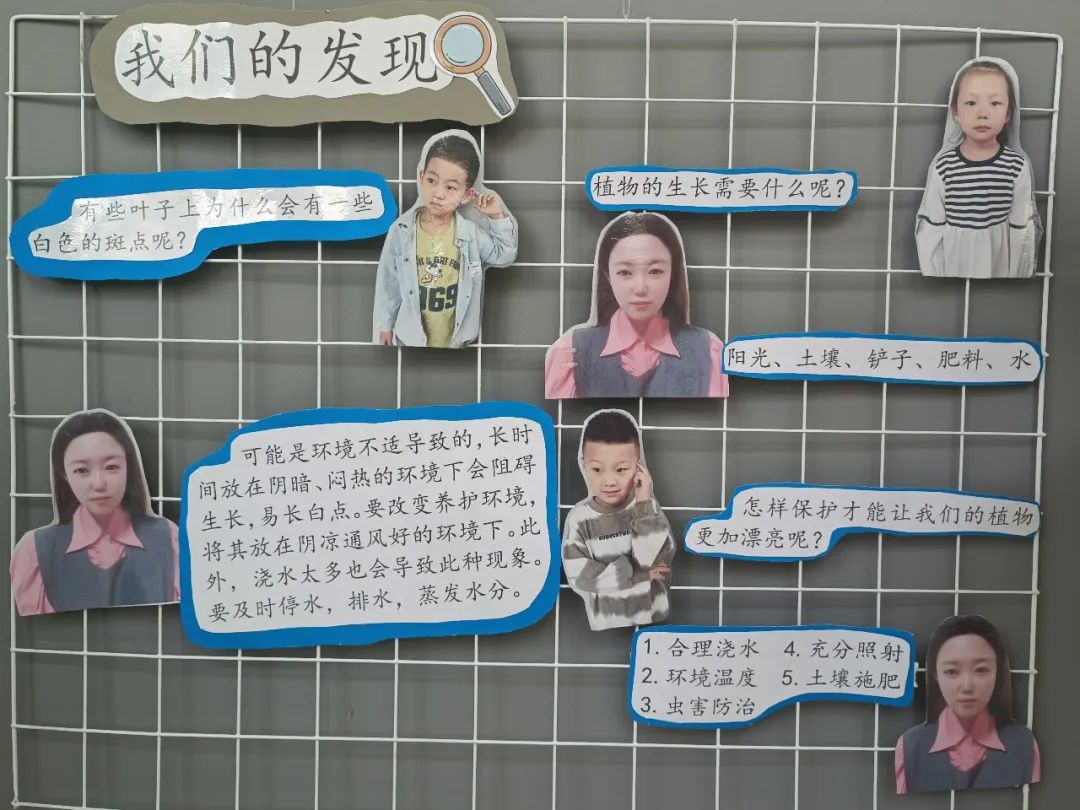 我们的发现
有些叶子上为什么会有一些
白色的斑点呢？
可能是环境不适导致的，长时
间放在阴暗、闷热的环境下会阻碍
生长，易长白点。要改变养护环境，
将其放在阴凉通风好的环境下。此
外，浇水太多也会导致此种现象。
要及时停水，排水，蒸发水分。
植物的生长需要什么呢？
阳光、土壤、铲子、肥料、水
怎样保护才能让我们的植物
更加漂亮呢？
1. 合理浇水 4. 充分照射
2. 环境温度 5. 土壤施肥
3. 虫害防治